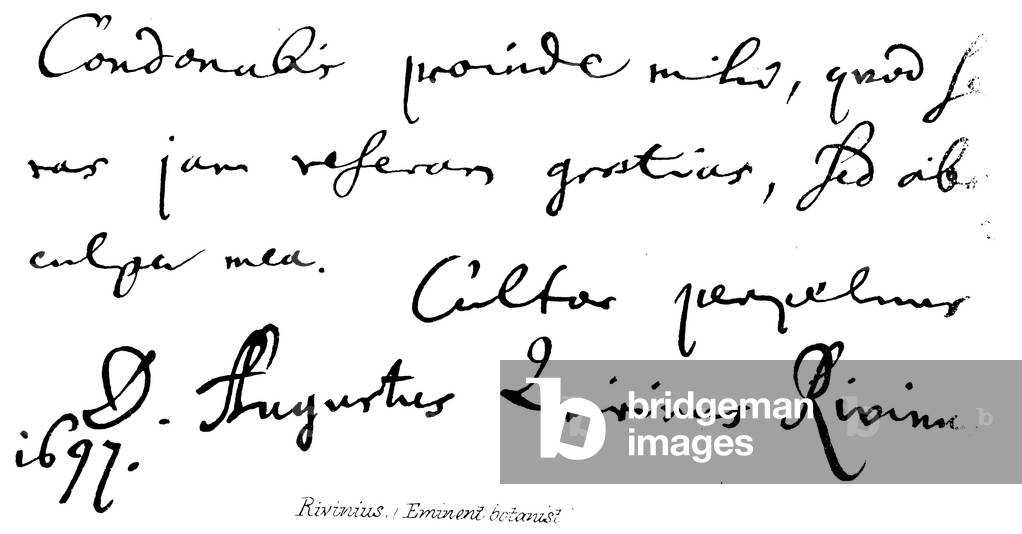 Condonabis proinde mihi, quod se
ras jam referam gratias, sed abs
culpa mea.
Cultor perpetuus
D. Augustus Quirinus Rivinus
1697.
Rivinius. Eminent botanist
bridgeman
images